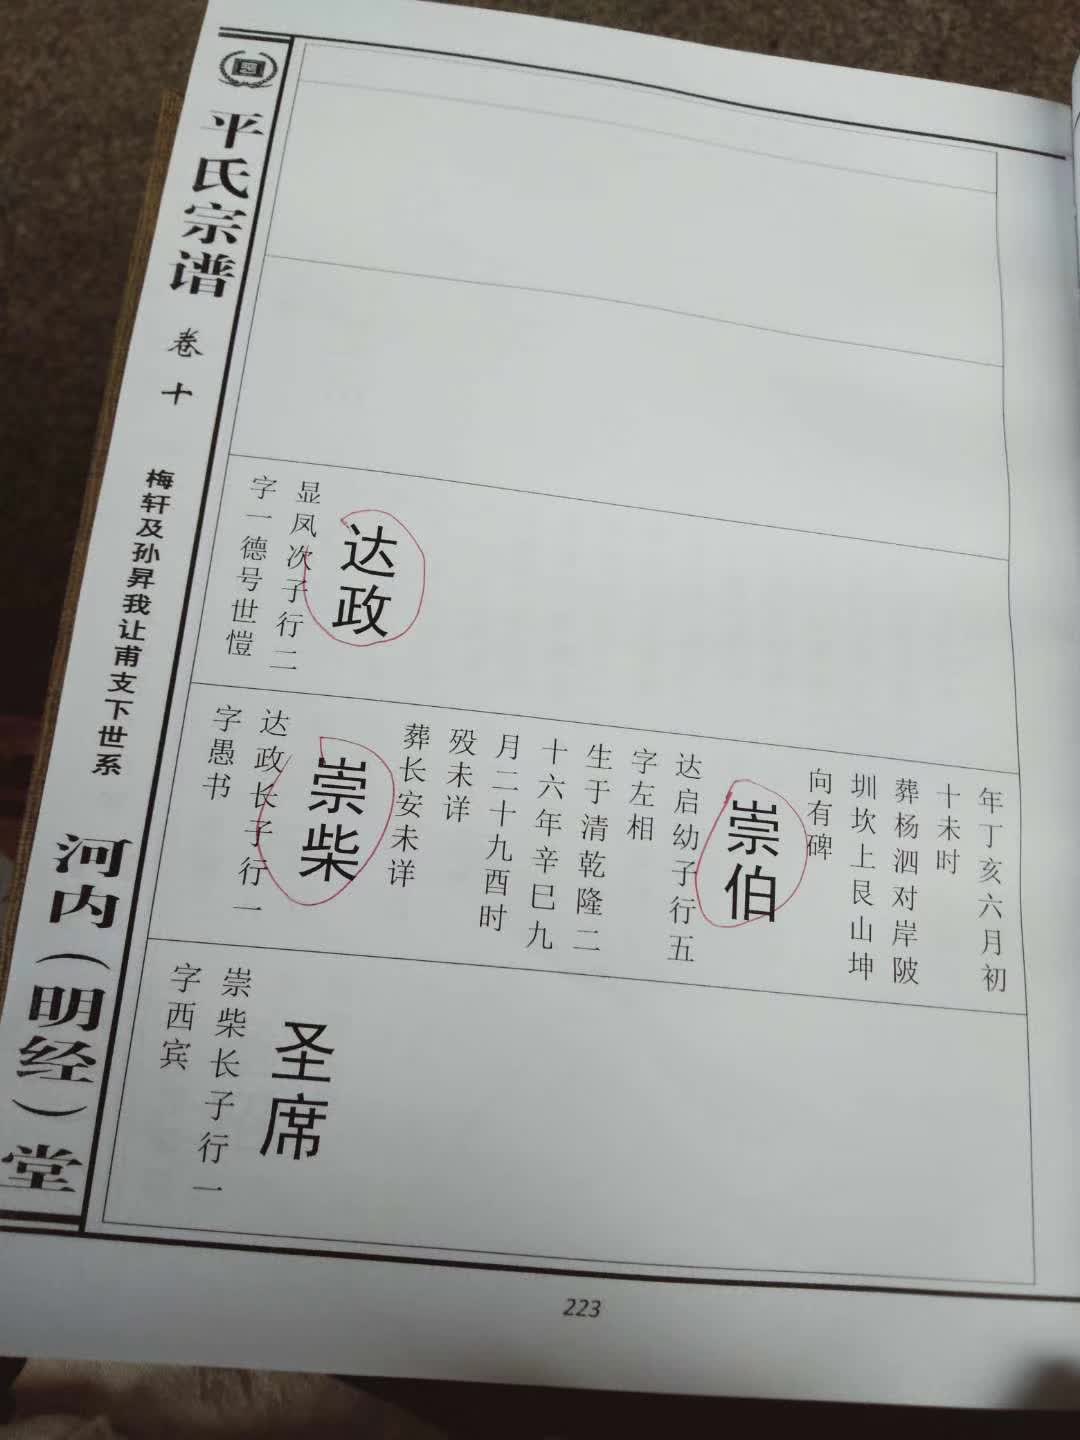 平氏宗谱
卷十
梅轩及孙昇我让甫支下世系
河内（明经）堂
达政
显凤次子行二
字一德号世愷
年丁亥六月初
十未时
葬杨泗对岸陂
圳坎上艮山坤
向有碑
崇伯
达启幼子行五
字左相
生于清乾隆二
十六年辛巳九
月二十九酉时
殁未详
葬长安未详
崇柴
达政长子行一
字愚书
圣席
崇柴长子行一
字西宾
223